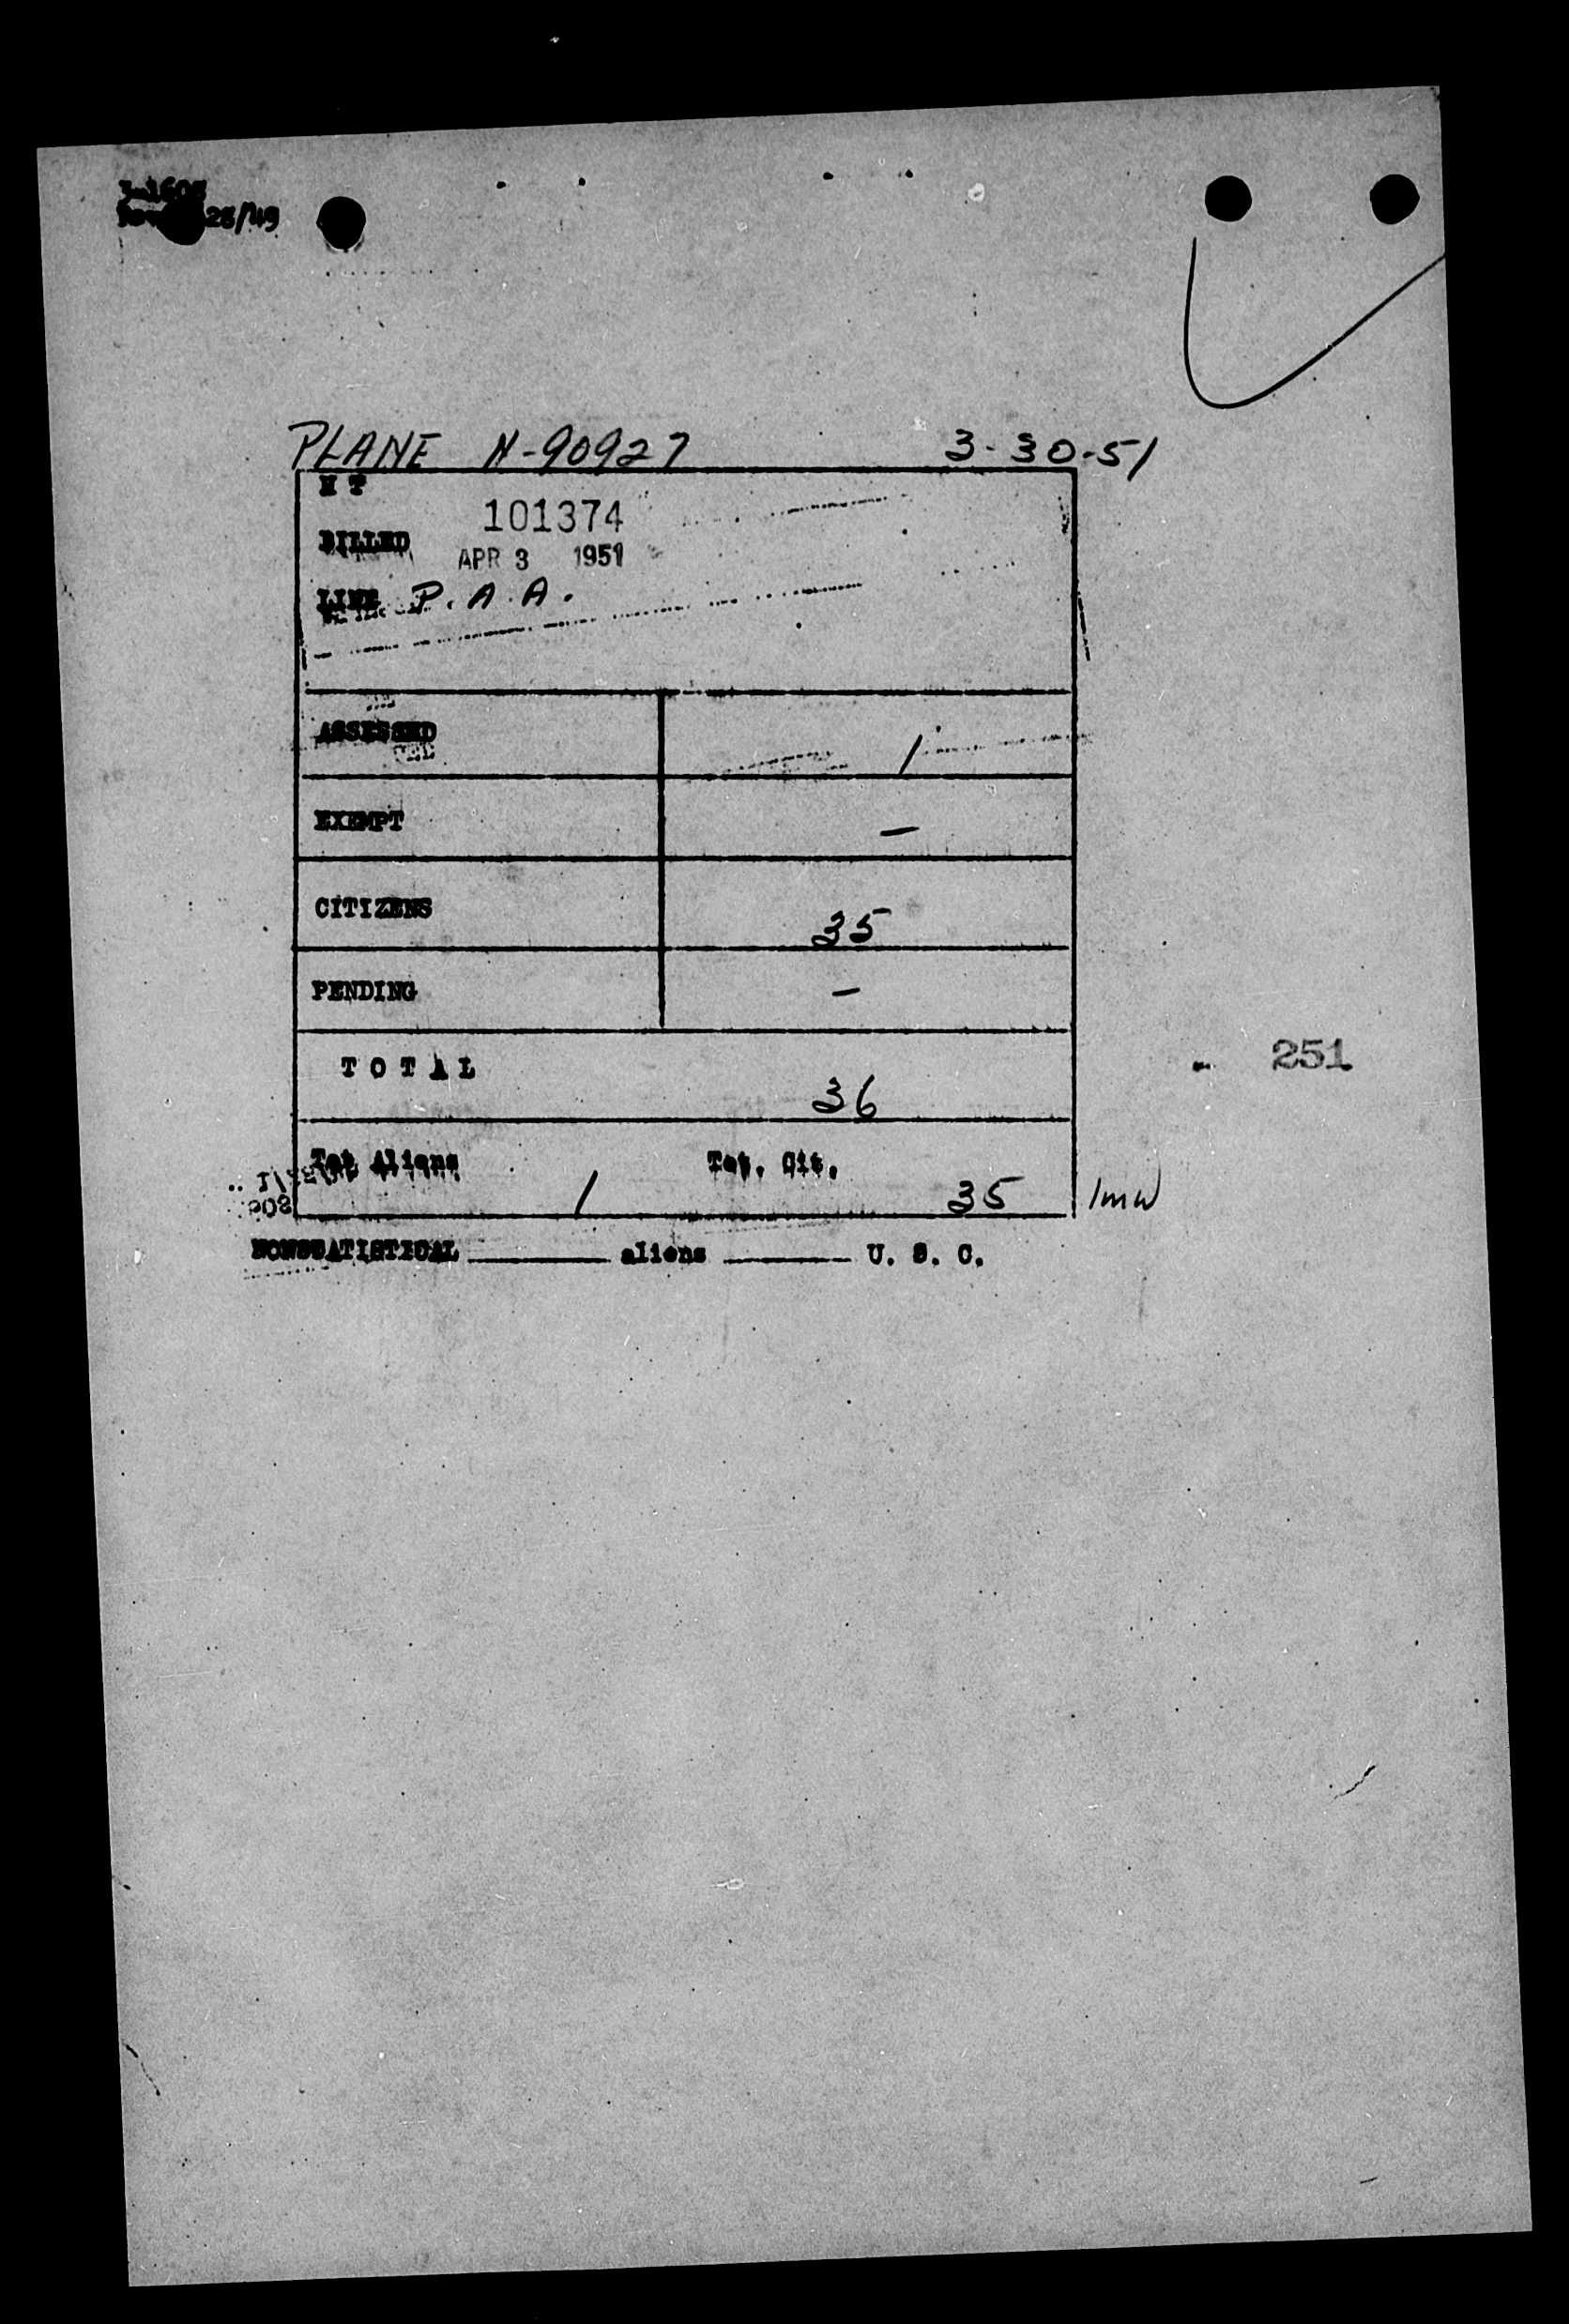 28/49
PLANE N-90927 3-30-51
101374
BILLED APR 3 1951
LINE P. A. A.
ASSESSED 1
EXEMPT —
CITIZENS 35
PENDING —
TOTAL 36
251
Tot Aliens 1 Tot. Cit. 35 1mw
NONSTATISTICAL ______ aliens ______ U. S. C.